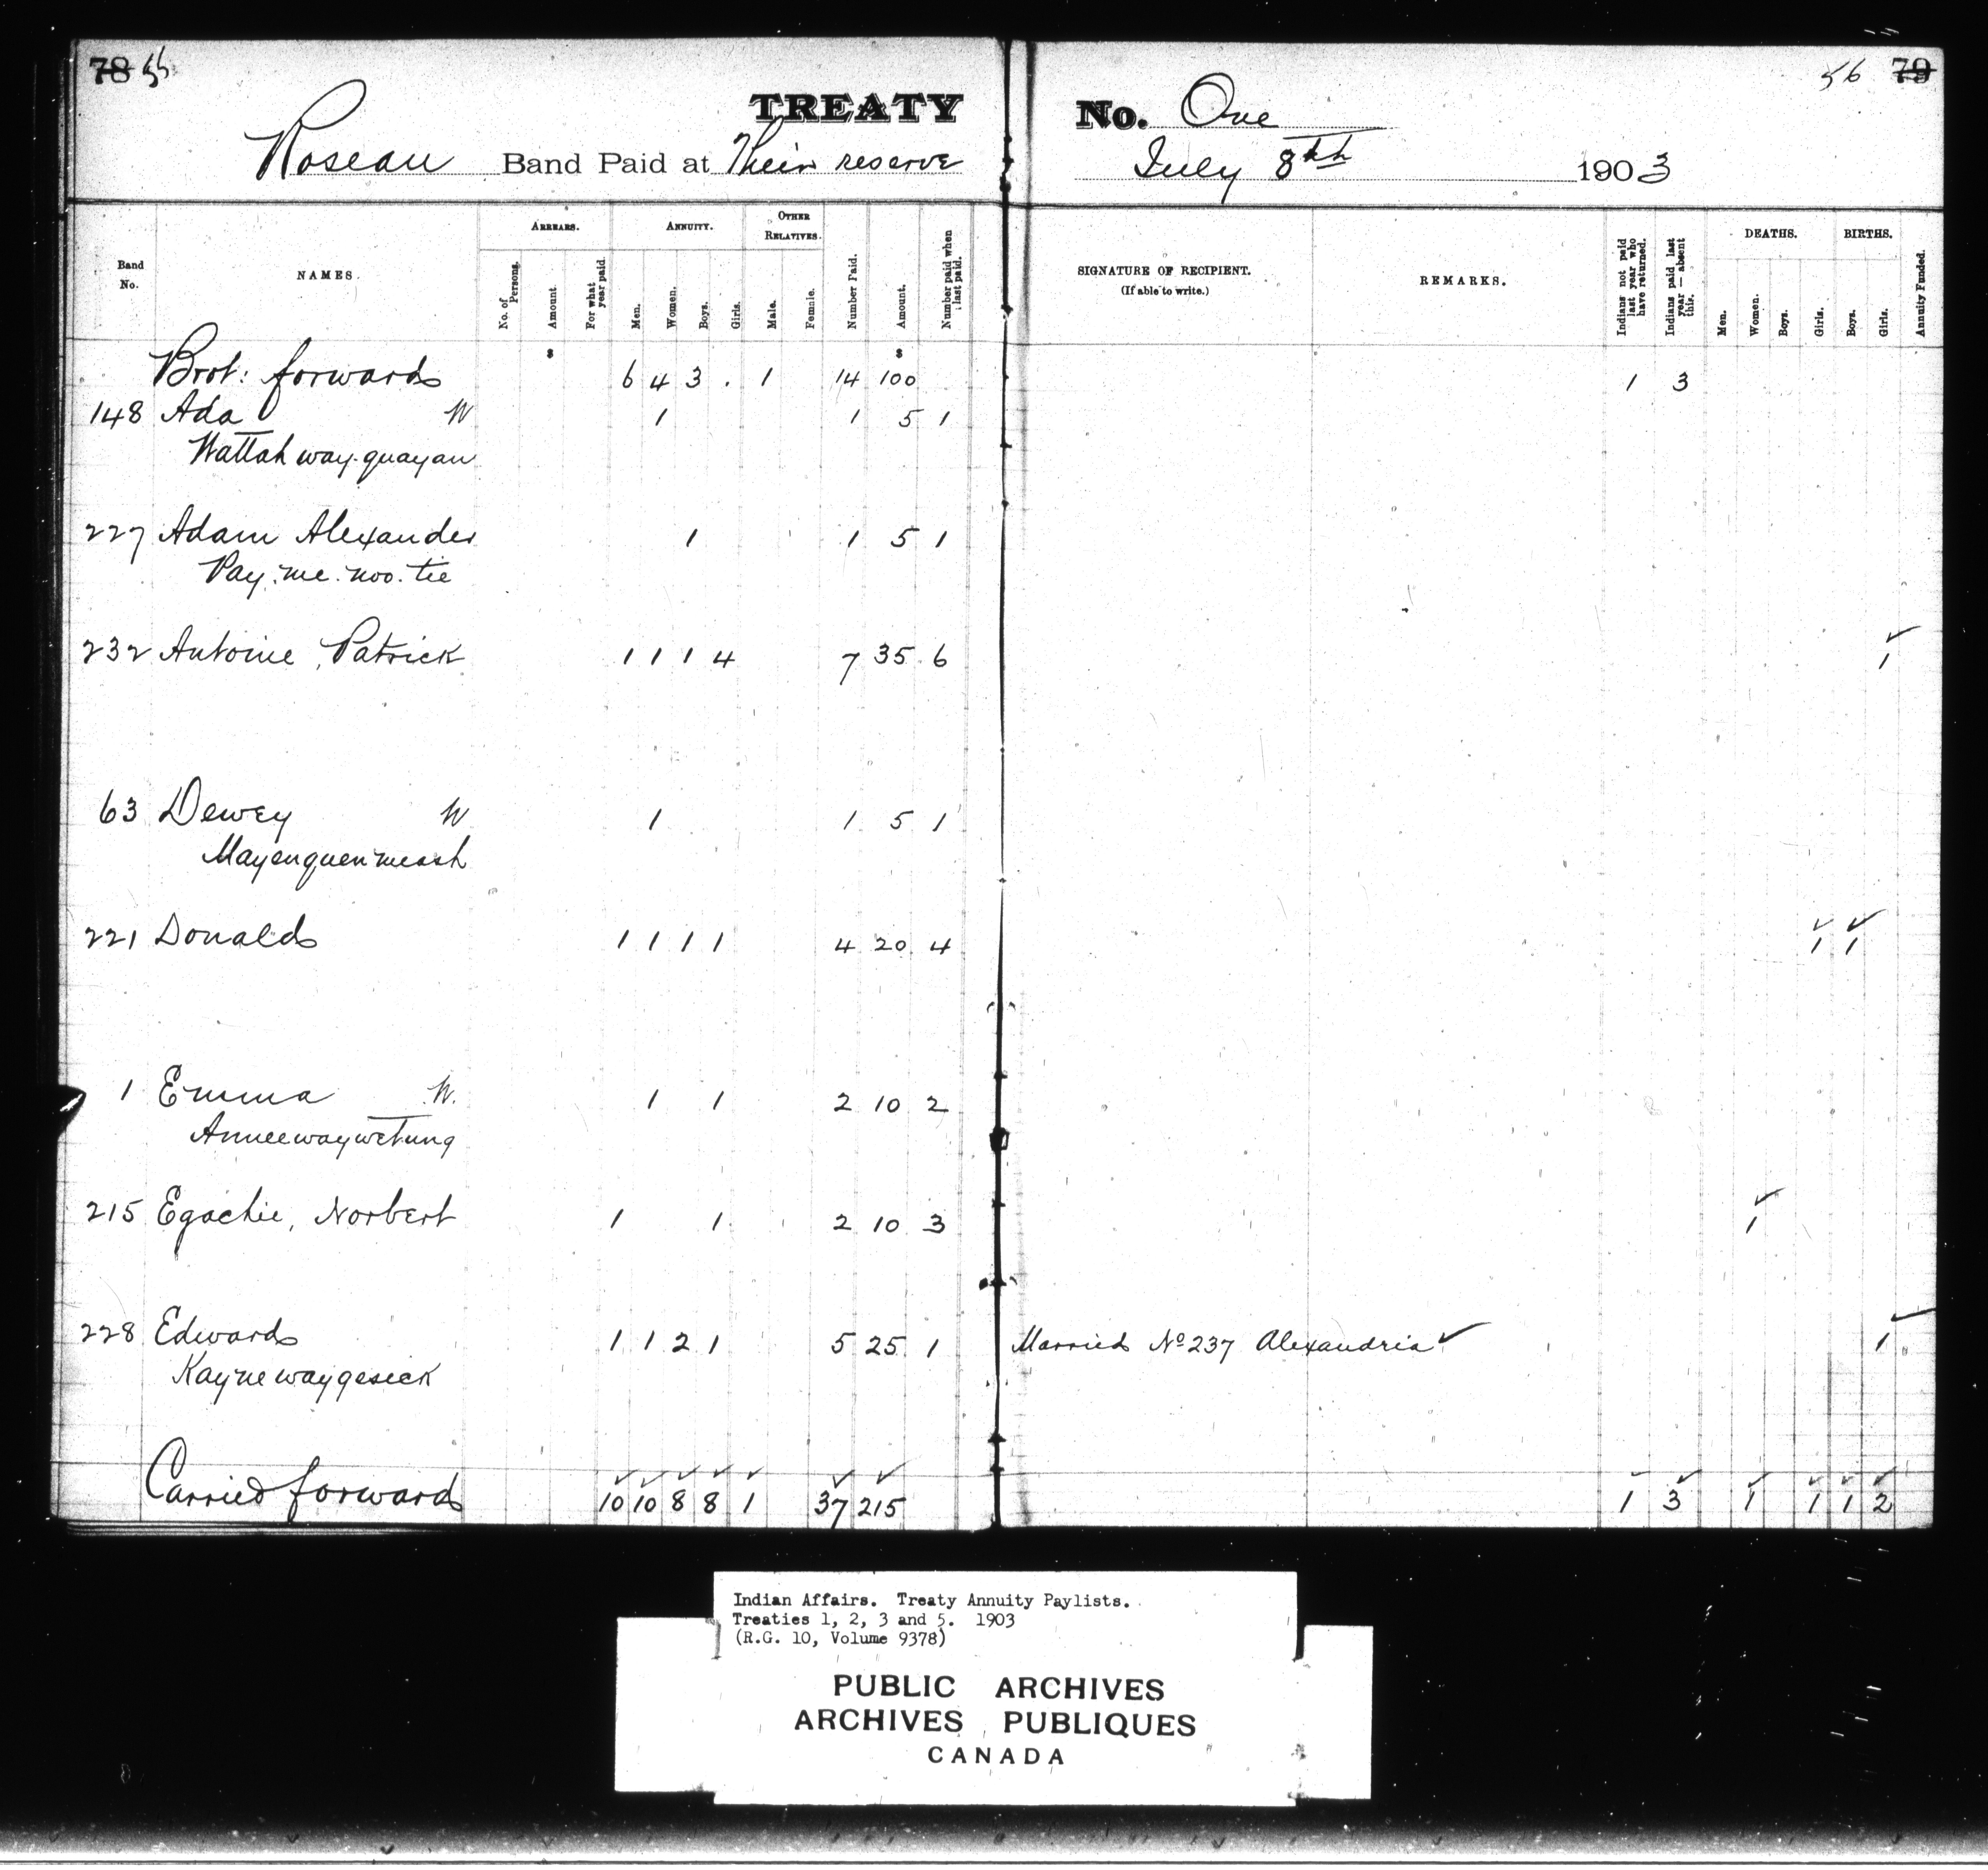 78 55
56 79
TREATY No. One
Roseau Band Paid at Their reserve July 8th 1903
Band No. NAMES. ARREARS. No. of Persons. Amount. For what year paid. ANNUITY. Men. Women. Boys. Girls. OTHER RELATIVES. Male. Female. Number Paid. Amount. Number paid when last paid. SIGNATURE OF RECIPIENT. (If able to write.) REMARKS. Indians not paid last year who have returned. Indians paid last year — absent this. DEATHS. Men. Women. Boys. Girls. BIRTHS. Boys. Girls. Annuity Funded.
$ $
Brot: forward 6 4 3 . 1 14 100 1 3
148 Ada W 1 1 5 1
Wattah way-quayan
227 Adam Alexander 1 1 5 1
Pay-me-noo-tie
232 Antoine, Patrick 1 1 1 4 7 35 6 ✓ 1
63 Dewey W 1 1 5 1
Mayenquenmeash
221 Donald 1 1 1 1 4 20 4 ✓ 1 ✓ 1
1 Emma W. 1 1 2 10 2
Anneewaywetung
215 Egachie, Norbert 1 1 2 10 3 ✓ 1
228 Edward 1 1 2 1 5 25 1 Married No 237 Alexandria ✓ ✓ 1
Kaynewaygesick
Carried forward 10 10 8 8 1 37 215 1 3 1 1 1 2
Indian Affairs. Treaty Annuity Paylists.
Treaties 1, 2, 3 and 5. 1903
(R.G. 10, Volume 9378)
PUBLIC ARCHIVES
ARCHIVES PUBLIQUES
CANADA